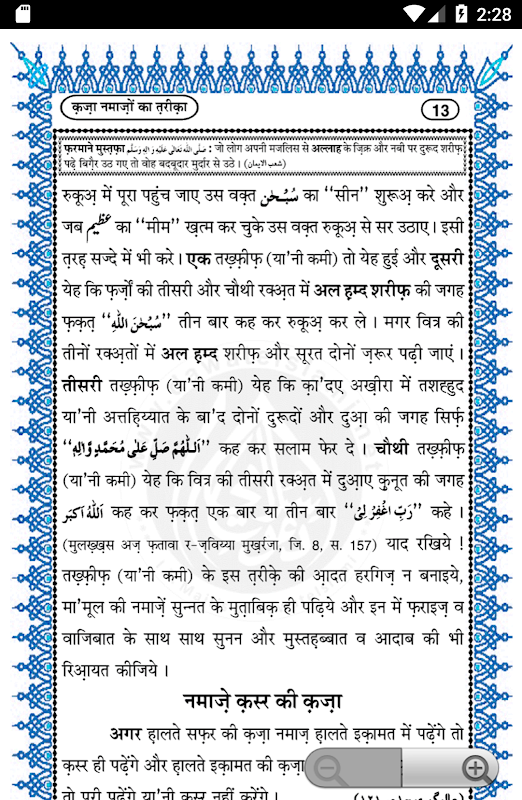 2:28
क़ज़ा नमाज़ों का त़रीक़ा
13
फ़रमाने मुस्त़फ़ा صَلَّى اللهُ تَعَالٰى عَلَيْهِ وَاٰلِهٖ وَسَلَّم : जो लोग अपनी मजलिस से अल्लाह के ज़िक्र और नबी पर दुरूद शरीफ़
पढ़े बिग़ैर उठ गए तो वोह बदबूदार मुर्दार से उठे । (شعب الایمان)
रुकूअ़ में पूरा पहुंच जाए उस वक़्त سُبْحٰن का ‘‘सीन’’ शुरूअ़ करे और
जब عَظِیْم का ‘‘मीम’’ ख़त्म कर चुके उस वक़्त रुकूअ़ से सर उठाए। इसी
त़रह सज्दे में भी करे। एक तख़्फ़ीफ़ (या’नी कमी) तो येह हुई और दूसरी
येह कि फ़र्ज़ों की तीसरी और चौथी रक्अ़त में अल ह़म्द शरीफ़ की जगह
फ़क़त़ ‘‘سُبْحٰنَ اللّٰهِ’’ तीन बार कह कर रुकूअ़ कर ले । मगर वित्र की
तीनों रक्अ़तों में अल ह़म्द शरीफ़ और सूरत दोनों ज़रूर पढ़ी जाएं ।
तीसरी तख़्फ़ीफ़ (या’नी कमी) येह कि क़ा’दए अख़ीरा में तशह्हुद
या’नी अत्तह़िय्यात के बा’द दोनों दुरूदों और दुआ़ की जगह सिर्फ़
‘‘اَللّٰهُمَّ صَلِّ عَلٰى مُحَمَّدٍ وَّاٰلِهٖ’’ कह कर सलाम फेर दे । चौथी तख़्फ़ीफ़
(या’नी कमी) येह कि वित्र की तीसरी रक्अ़त में दुआ़ए क़ुनूत की जगह
اَللّٰهُ اَكْبَر कह कर फ़क़त़ एक बार या तीन बार ‘‘رَبِّ اغْفِرْ لِیْ’’ कहे ।
(मुलख़्ख़स अज़ फ़तावा र-ज़विय्या मुख़र्रजा, जि. 8, स. 157) याद रखिये !
तख़्फ़ीफ़ (या’नी कमी) के इस त़रीक़े की आ़दत हरगिज़ न बनाइये,
मा’मूल की नमाज़ें सुन्नत के मुत़ाबिक़ ही पढ़िये और इन में फ़राइज़ व
वाजिबात के साथ साथ सुनन और मुस्तह़ब्बात व आदाब की भी
रिआ़यत कीजिये ।
नमाज़े क़स्र की क़ज़ा
अगर ह़ालते सफ़र की क़ज़ा नमाज़ ह़ालते इक़ामत में पढ़ेंगे तो
क़स्र ही पढ़ेंगे और ह़ालते इक़ामत की क़ज़ा
तो पूरी पढ़ेंगे या’नी क़स्र नहीं करेंगे ।